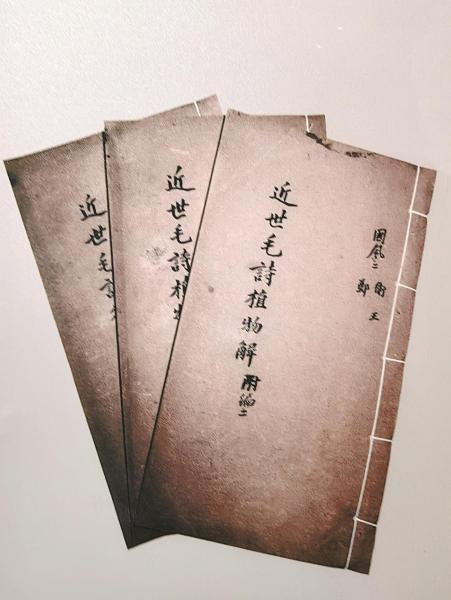 國風二 衛 王
鄭
近世毛詩植物解 附編二
近世毛詩植物
近世毛